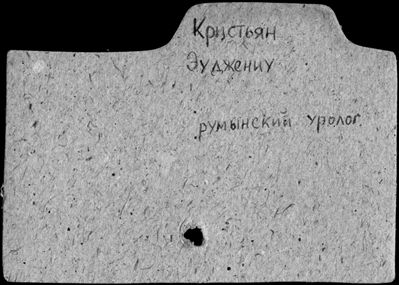 Кристьян
Эуджениу
румынский уролог.